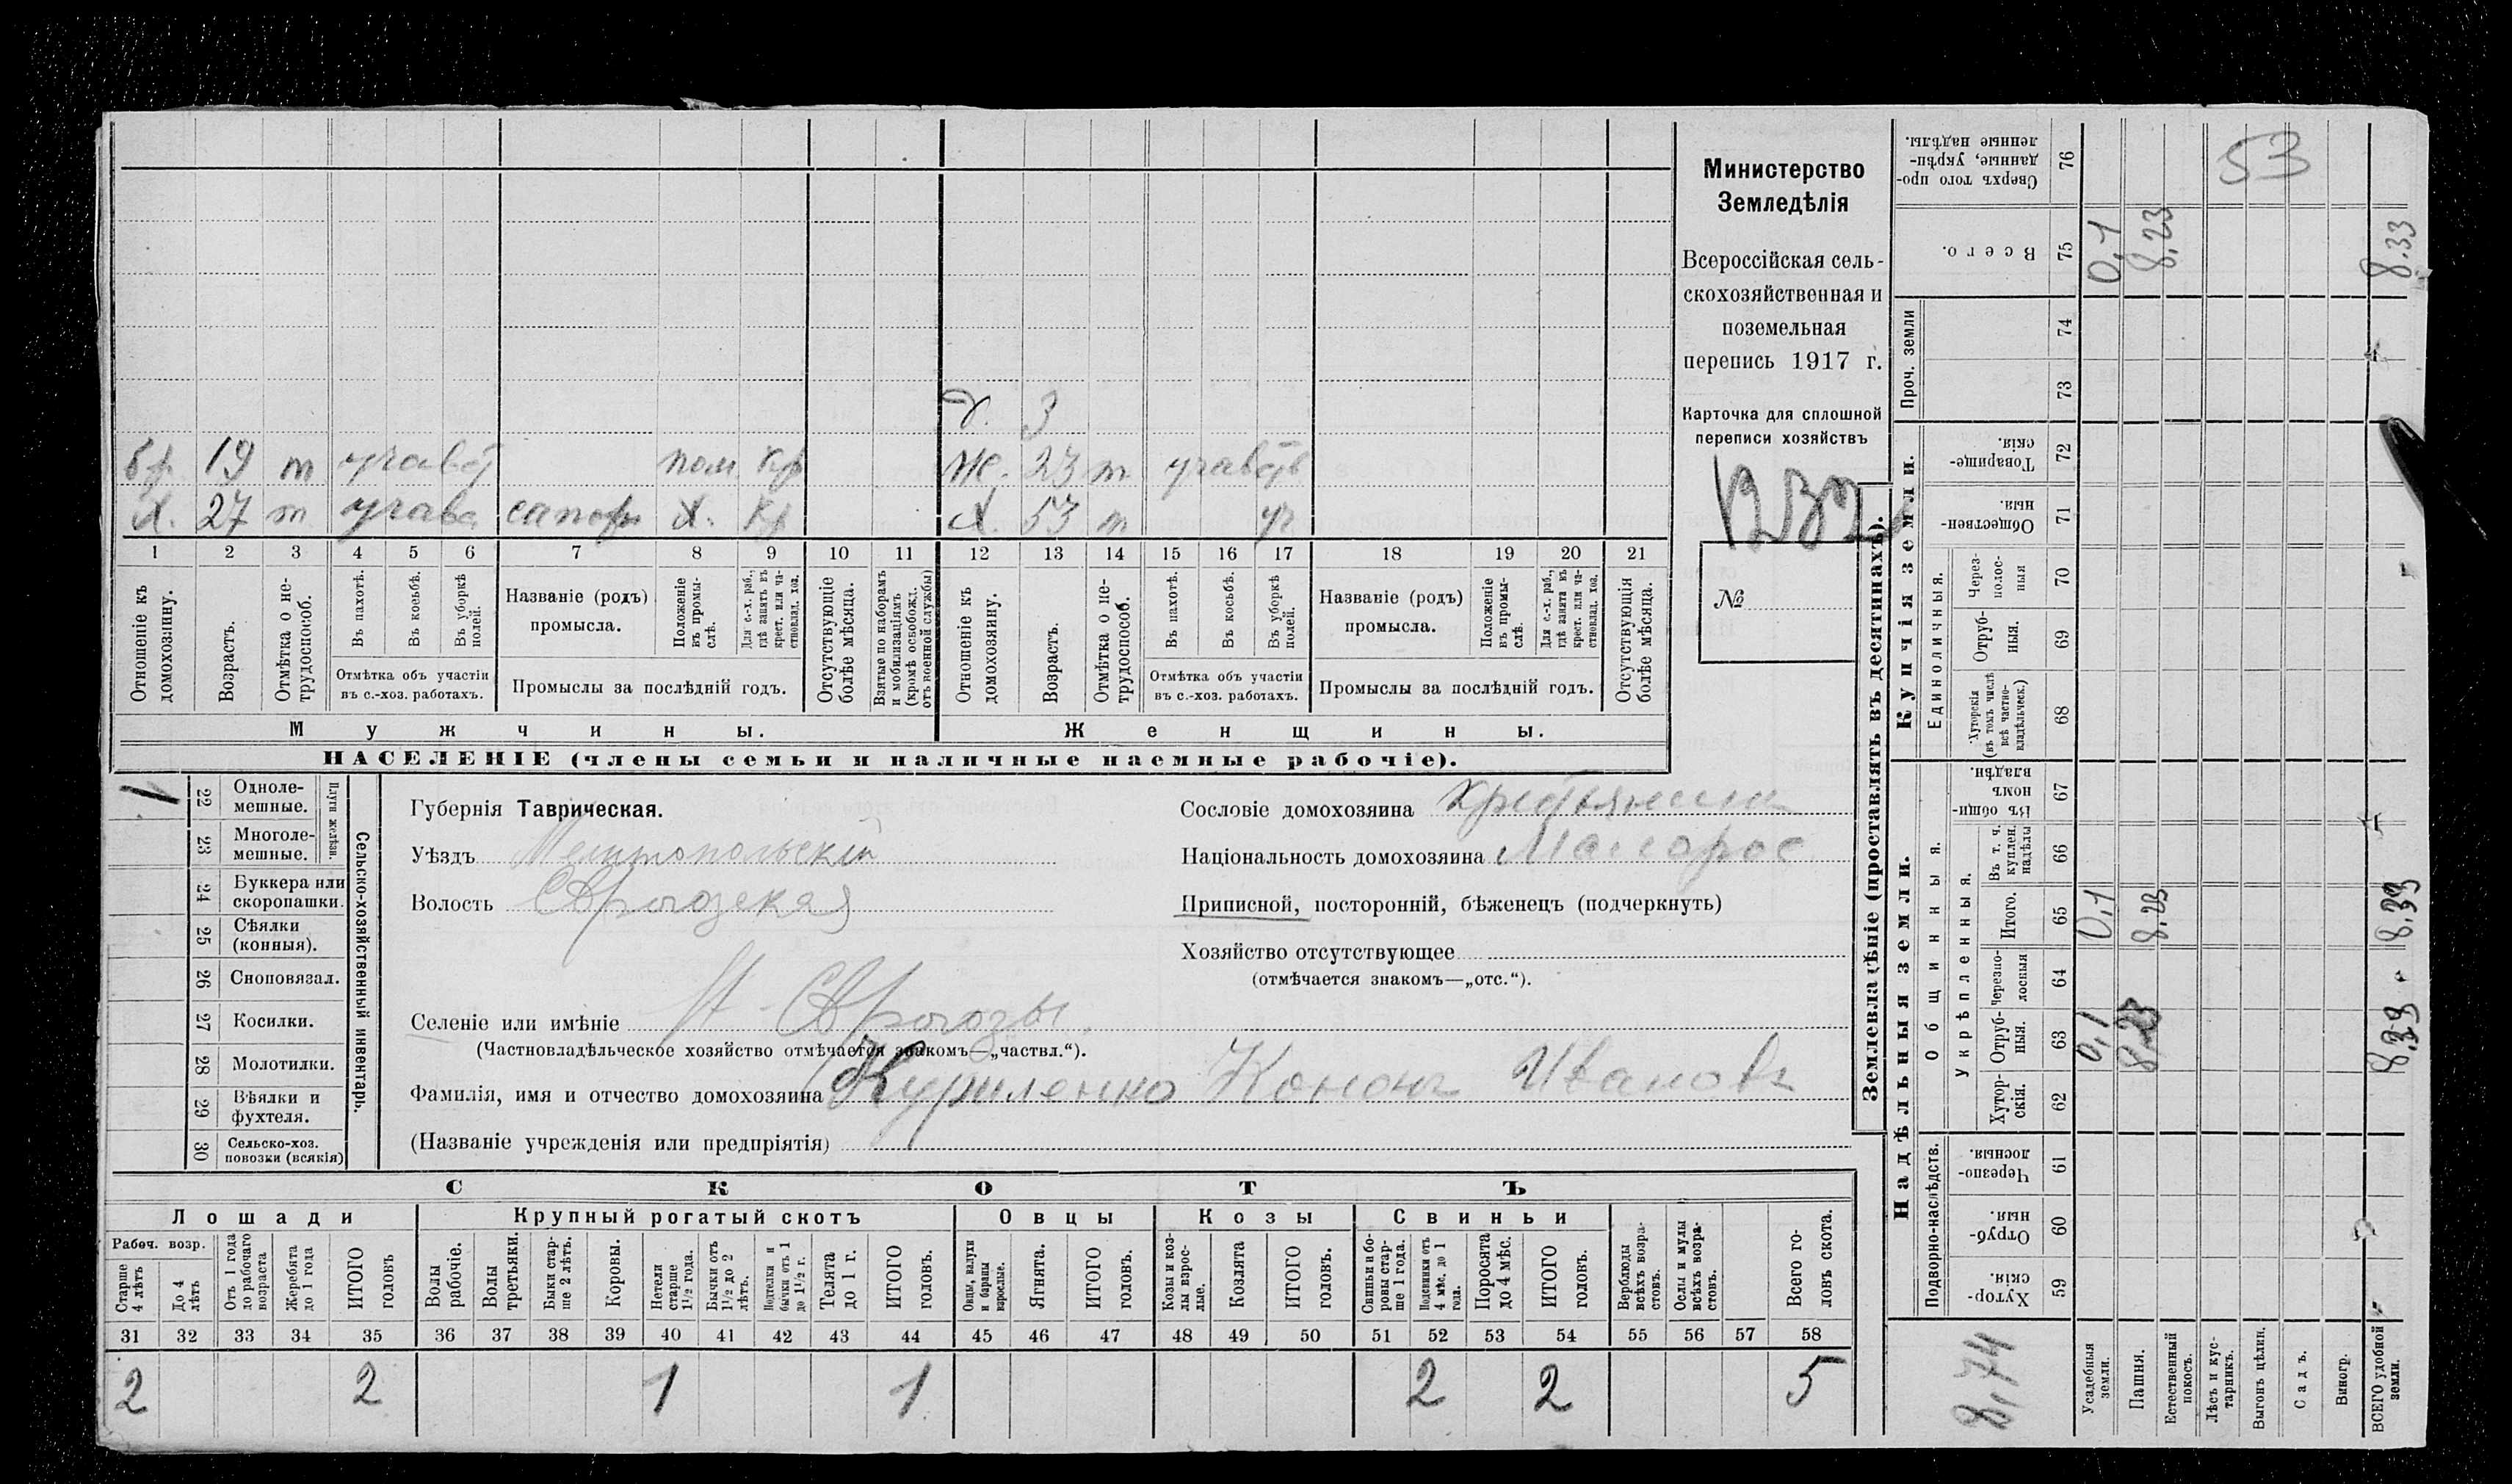 Министерство
Земледѣлія
Всероссійская сель-
скохозяйственная и
поземельная
перепись 1917 г.
Карточка для сплошной
переписи хозяйствъ
№
д. 3
бр. 19 т участ пом. кр Же. 23 т. участв
Х. 27 т участ Х. кр Х. 53 т уч
1 2 3 4 5 6 7 8 9 10 11 12 13 14 15 16 17 18 19 20 21
Отношеніе къ домохозяину.
Возрастъ.
Отмѣтка о не-трудоспособ.
Въ пахотѣ.
Въ косьбѣ.
Въ уборкѣ полей.
Отмѣтка объ участіи въ с.-хоз. работахъ.
Названіе (родъ) промысла.
Положеніе въ промы-слѣ.
Для с.-х. раб., гдѣ занятъ въ крест. или ча-стновлад. хоз.
Промыслы за послѣдній годъ.
Отсутствующіе болѣе мѣсяца.
Взятые по наборамъ и мобилизаціямъ (кромѣ освобожд. отъ военной службы)
Отношеніе къ домохозяину.
Возрастъ.
Отмѣтка о не-трудоспособ.
Въ пахотѣ.
Въ косьбѣ.
Въ уборкѣ полей.
Отмѣтка объ участіи въ с.-хоз. работахъ.
Названіе (родъ) промысла.
Положеніе въ промы-слѣ.
Для с.-х. раб., гдѣ занята въ крест. или ча-стновлад. хоз.
Промыслы за послѣдній годъ.
Отсутствующія болѣе мѣсяца.
Мужчины. Женщины.
НАСЕЛЕНІЕ (члены семьи и наличные наемные рабочіе).
1 22 Одноле-мешные.
23 Многоле-мешные.
Плуги желѣзн.
24 Буккера или скоропашки.
25 Сѣялки (конныя).
26 Сноповязал.
27 Косилки.
28 Молотилки.
29 Вѣялки и фухтеля.
30 Сельско-хоз. повозки (всякія)
Сельско-хозяйственный инвентарь.
Губернія Таврическая.
Уѣздъ Мелитопольскій
Волость
Селеніе или имѣніе
(Частновладѣльческое хозяйство отмѣчается знакомъ—„частвл.“).
Фамилія, имя и отчество домохозяина Куриленко Кононъ Ивановъ
(Названіе учрежденія или предпріятія)
Сословіе домохозяина крестьянинъ
Національность домохозяина Малорос
Приписной, посторонній, бѣженецъ (подчеркнуть)
Хозяйство отсутствующее
(отмѣчается знакомъ—„отс.“).
СКОТЪ
Лошади Крупный рогатый скотъ Овцы Козы Свиньи
Рабоч. возр.
Старше 4 лѣтъ
До 4 лѣтъ
Отъ 1 года до рабочаго возраста
Жеребята до 1 года
ИТОГО головъ
Волы рабочіе.
Волы третьяки.
Быки стар-ше 2 лѣтъ.
Коровы.
Нетели старше 1½ года.
Бычки отъ 1½ до 2 лѣтъ.
Подтелки и бычки отъ 1 до 1½ г.
Телята до 1 г.
ИТОГО головъ.
Овцы, валухи и бараны взрослые.
Ягнята.
ИТОГО головъ.
Козы и коз-лы взрос-лые.
Козлята
ИТОГО головъ.
Свиньи и бо-ровы стар-ше 1 года.
Подсвинки отъ 4 мѣс. до 1 года.
Поросята до 4 мѣс.
ИТОГО головъ.
Верблюды всѣхъ возра-стовъ.
Ослы и мулы всѣхъ возра-стовъ.
Всего го-ловъ скота.
31 32 33 34 35 36 37 38 39 40 41 42 43 44 45 46 47 48 49 50 51 52 53 54 55 56 57 58
2 2 1 1 2 2 5
Землевладѣніе (проставлять въ десятинахъ).
Надѣльныя земли. Купчія земли. Проч. земли
Подворно-наслѣдств.
Общинныя.
Укрѣпленныя.
Единоличныя.
Сверхъ того про-данные, укрѣп-ленные надѣлы. 76 53
Всего. 75 0,1 8,23 8.33
74
73
Товарище-скія. 72
Обществен-ныя. 71
Через-полос-ныя 70
Отруб-ныя. 69
Хуторскія (въ томъ числѣ всѣ частно-владѣльческ.) 68
Въ общи-номъ владѣн. 67
Въ т. ч. куплен. надѣлы 66
Итого. 65 0,1 8,23 8,33
Черезпо-лосныя 64
Отруб-ныя. 63 0,1 8,23 8.33
Хутор-скія. 62
Черезпо-лосныя. 61
Отруб-ныя. 60
Хутор-скія. 59
8,74
Усадебныя земли.
Пашня.
Естественный покосъ.
Лѣсъ и кус-тарникъ.
Выгонъ цѣлин.
Садъ.
Виногр.
ВСЕГО удобной земли.